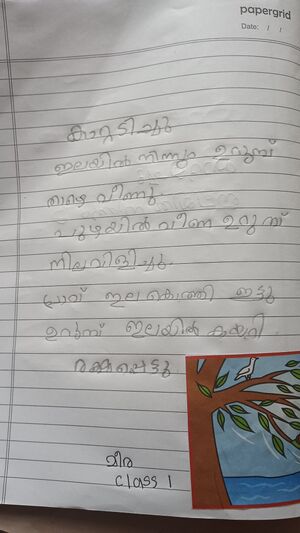 papergrid
Date: / /
കാറ്റടിച്ചു
ഇലയിൽ നിന്നും ഉറുമ്പ്
താഴെ വീണു.
പുഴയിൽ വീണ ഉറുമ്പ്
നിലവിളിച്ചു.
പ്രാവ് ഇല കൊത്തി ഇട്ടു
ഉറുമ്പ് ഇലയിൽ കയറി
രക്ഷപ്പെട്ടു
മീര
Class 1